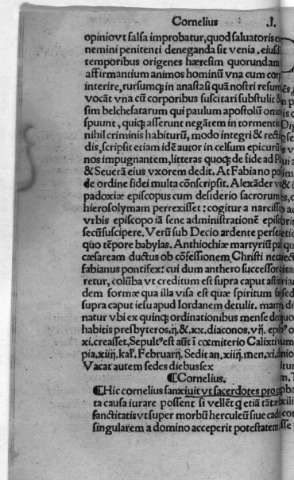 Cornelius J.
opiniovt falsa improbatur, quod saluatoris
nemini penitenti deneganda sit venia, eiusd
temporibus origenes hæresim quorundam
affirmantium animos hominū vna cum cor
interire, rursumq; in anastasi quā nostri resur
vocāt vna cū corporibus suscitari substulit &
sim belchesatarum qui paulum apostolū
spuunt, quiq; asserunt negātem in tormentis
nihil criminis habiturū, modo integri & recti
dis, scripsit etiam idē auor in celsum epicurū
nos impugnantem, litteras quoq; de fide ad
& Seuerā eius vxorem dedit. At Fabiano
de ordine fidei multa cōscripsit. Alexāder
padoxiæ episcopus cum desiderio sacrorum
hierosolymam perrexisset: cogitur a narcisso
vrbis episcopo iā sene administrationē episco
secūsuscipere. Verū sub Decio ardente
quo tēpore babylas. Anthiochiæ martyriū
cæsaream ductus ob cōfessionem Christi
fabianus pontifex: cui dum anthero successor
retur, colūba vt creditum est supra caput
dem formæ qua illa visa est quæ spiritum
supra caput iesu apud Iordanem detulit.
natur vbi ex quinq; ordinationibus mense
habitis presbyteros .ij. & .xx. diaconos .vij.
xi. creasset, Sepult' est aūt ī cœmiterio Calixti
pia, xiiij. kal'. Februarij. Sedit an. xiiij. men. xi.
Vacat autem sedes diebus sex
¶Cornelius.
¶Hic cornelius sanxiuit vt sacerdotes
ta causa iurare possent si vellēt q etiā
sanctitatis vt super morbū herculeū siue
singularem a domino acceperit potestatem